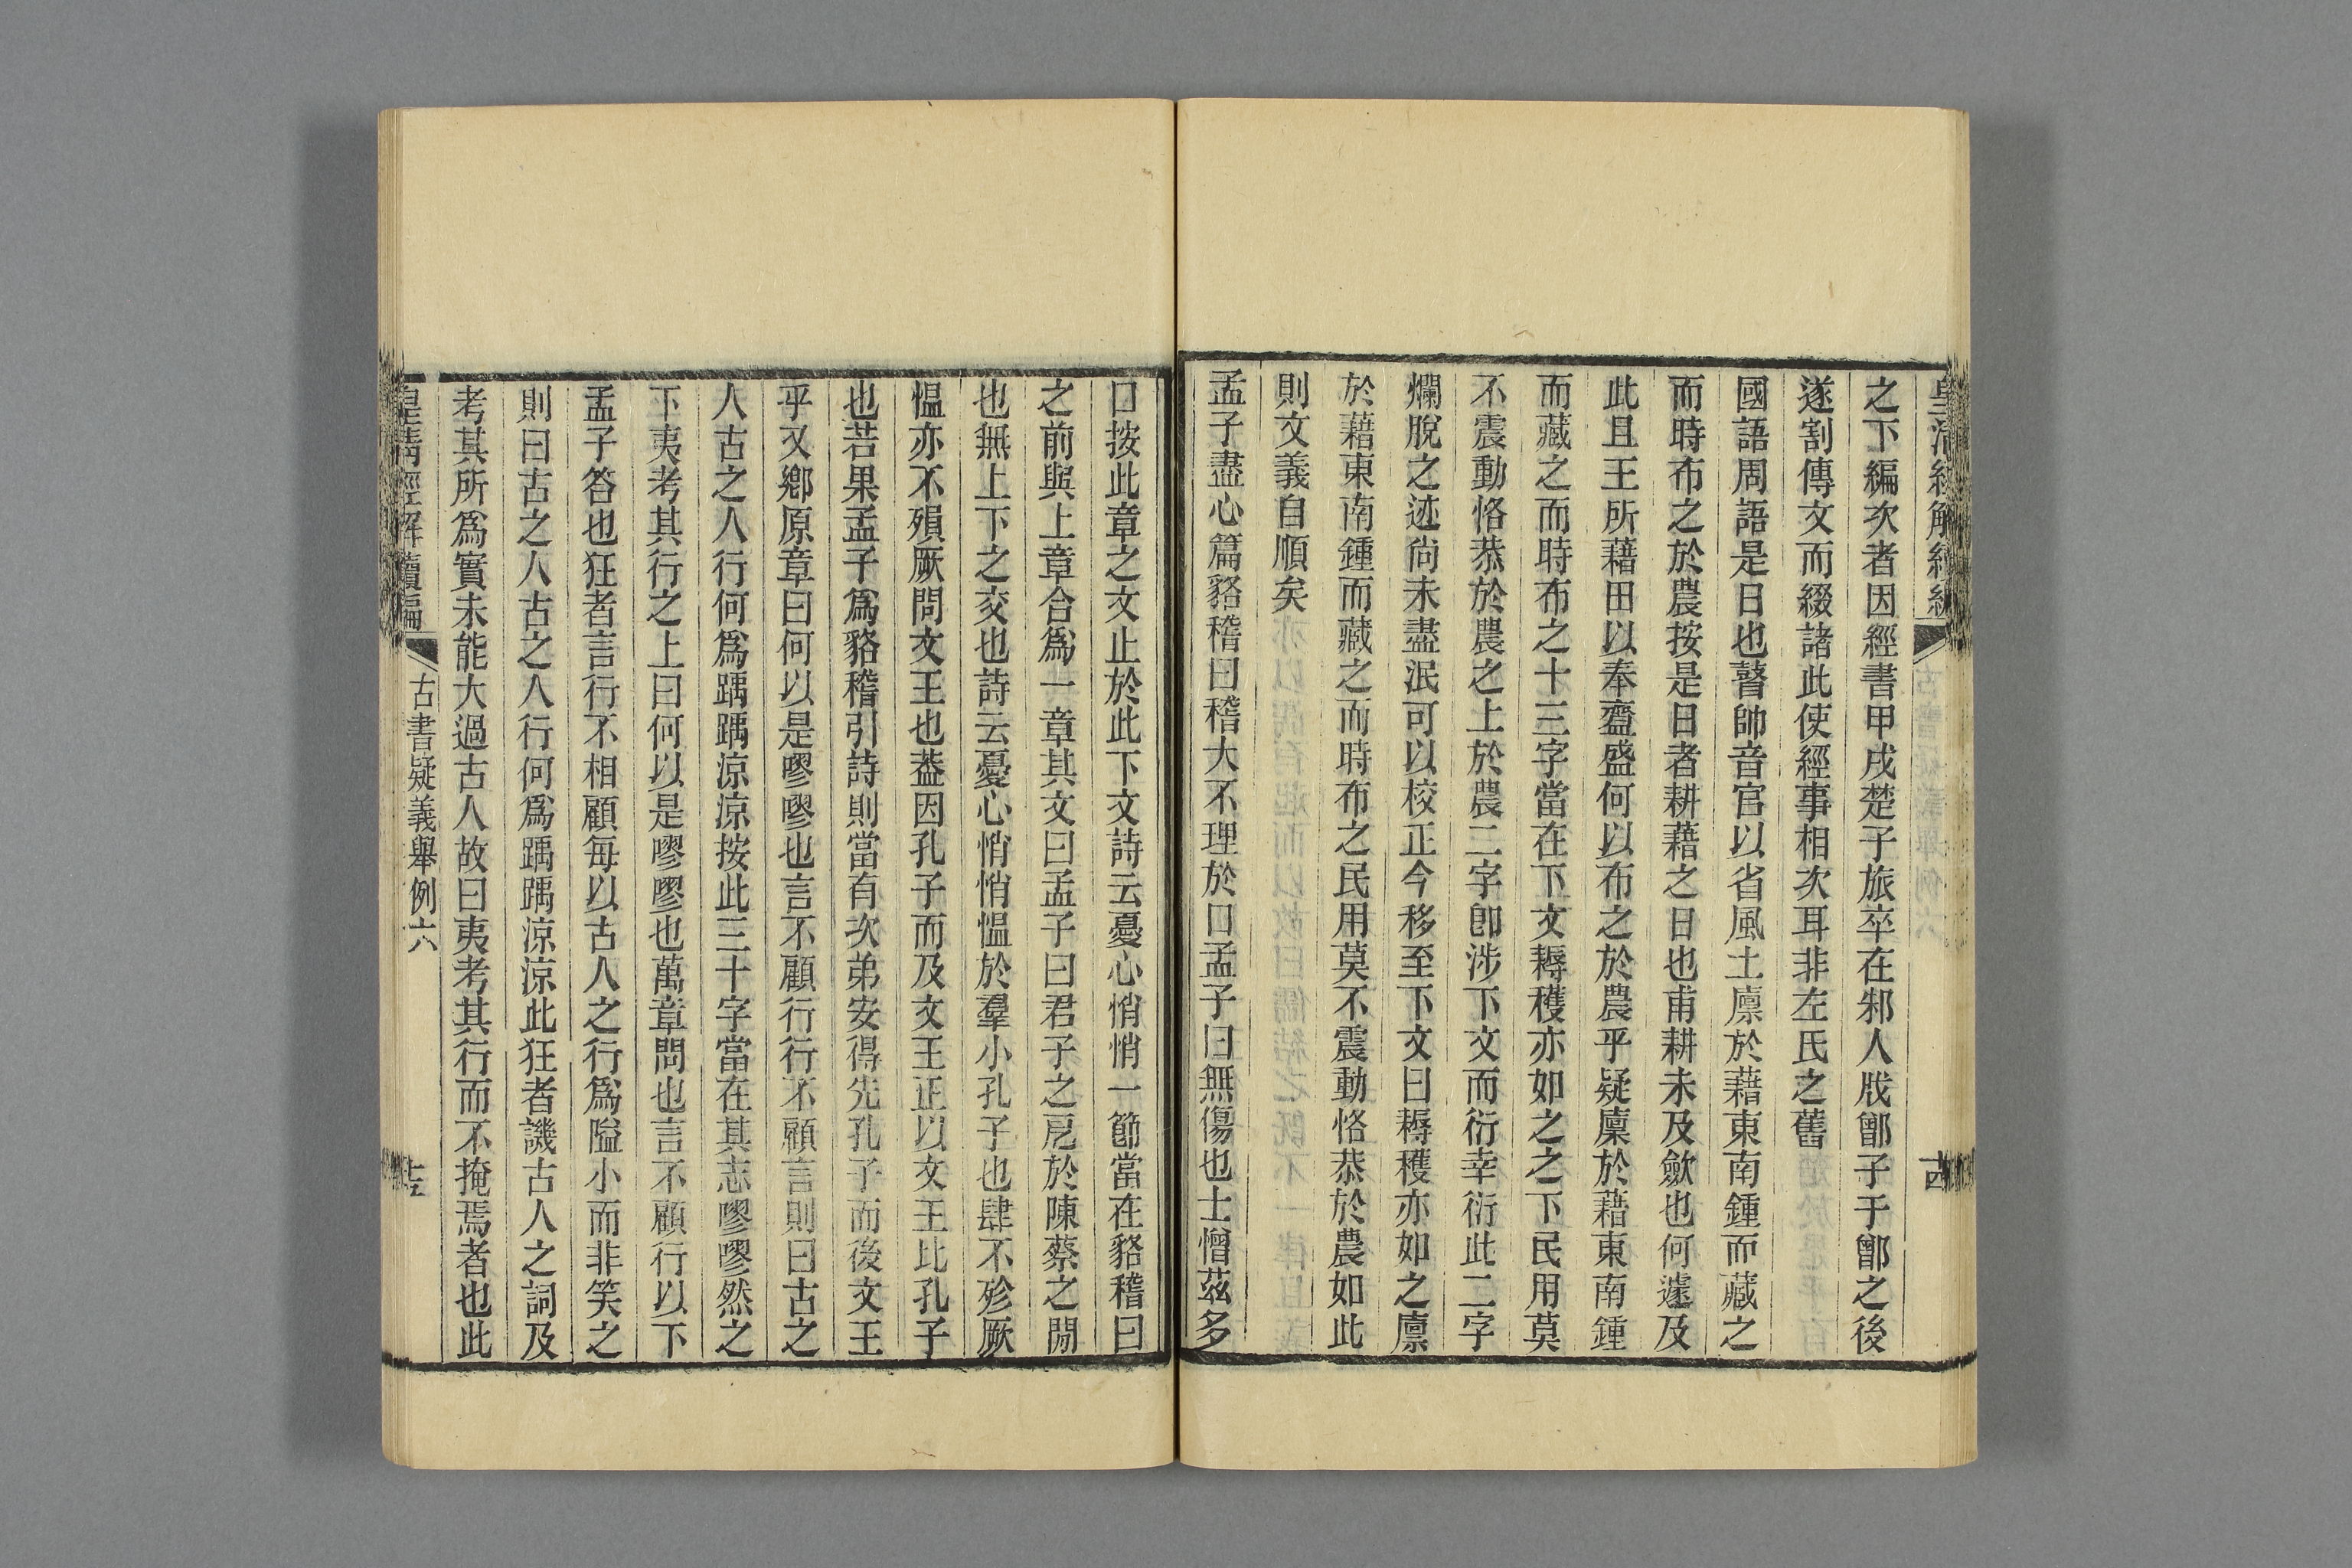 之下編次者因經書甲戌楚子旅卒在邾人戕鄫子于鄫之後
遂割傳文而綴諸此使經事相次耳非左氏之舊
國語周語是日也瞽帥音官以省風土廩於藉東南鍾而藏之
而時布之於農按是日者耕藉之日也甫耕未及斂也何遽及
此且王所藉田以奉齍盛何以布之於農乎疑廩於藉東南鍾
而藏之而時布之十三字當在下文耨穫亦如之之下民用莫
不震動恪恭於農之上於農二字卽涉下文而衍幸衍此二字
爛脫之迹尙未盡泯可以校正今移至下文曰耨穫亦如之廩
於藉東南鍾而藏之而時布之民用莫不震動恪恭於農如此
則文義自順矣
孟子盡心篇貉稽曰稽大不理於口孟子曰無傷也士憎茲多
口按此章之文止於此下文詩云憂心悄悄一節當在貉稽曰
之前與上章合爲一章其文曰孟子曰君子之戹於陳蔡之閒
也無上下之交也詩云憂心悄悄慍於羣小孔子也肆不殄厥
慍亦不殞厥問文王也葢因孔子而及文王正以文王比孔子
也若果孟子爲貉稽引詩則當有次弟安得先孔子而後文王
乎又鄉原章曰何以是嘐嘐也言不顧行行不顧言則曰古之
人古之人行何爲踽踽涼涼按此三十字當在其志嘐嘐然之
下夷考其行之上曰何以是嘐嘐也萬章問也言不顧行以下
孟子答也狂者言行不相顧每以古人之行爲隘小而非笑之
則曰古之人古之人行何爲踽踽涼涼此狂者譏古人之詞及
考其所爲實未能大過古人故曰夷考其行而不掩焉者也此
皇清經解續編 古書疑義舉例六 十五